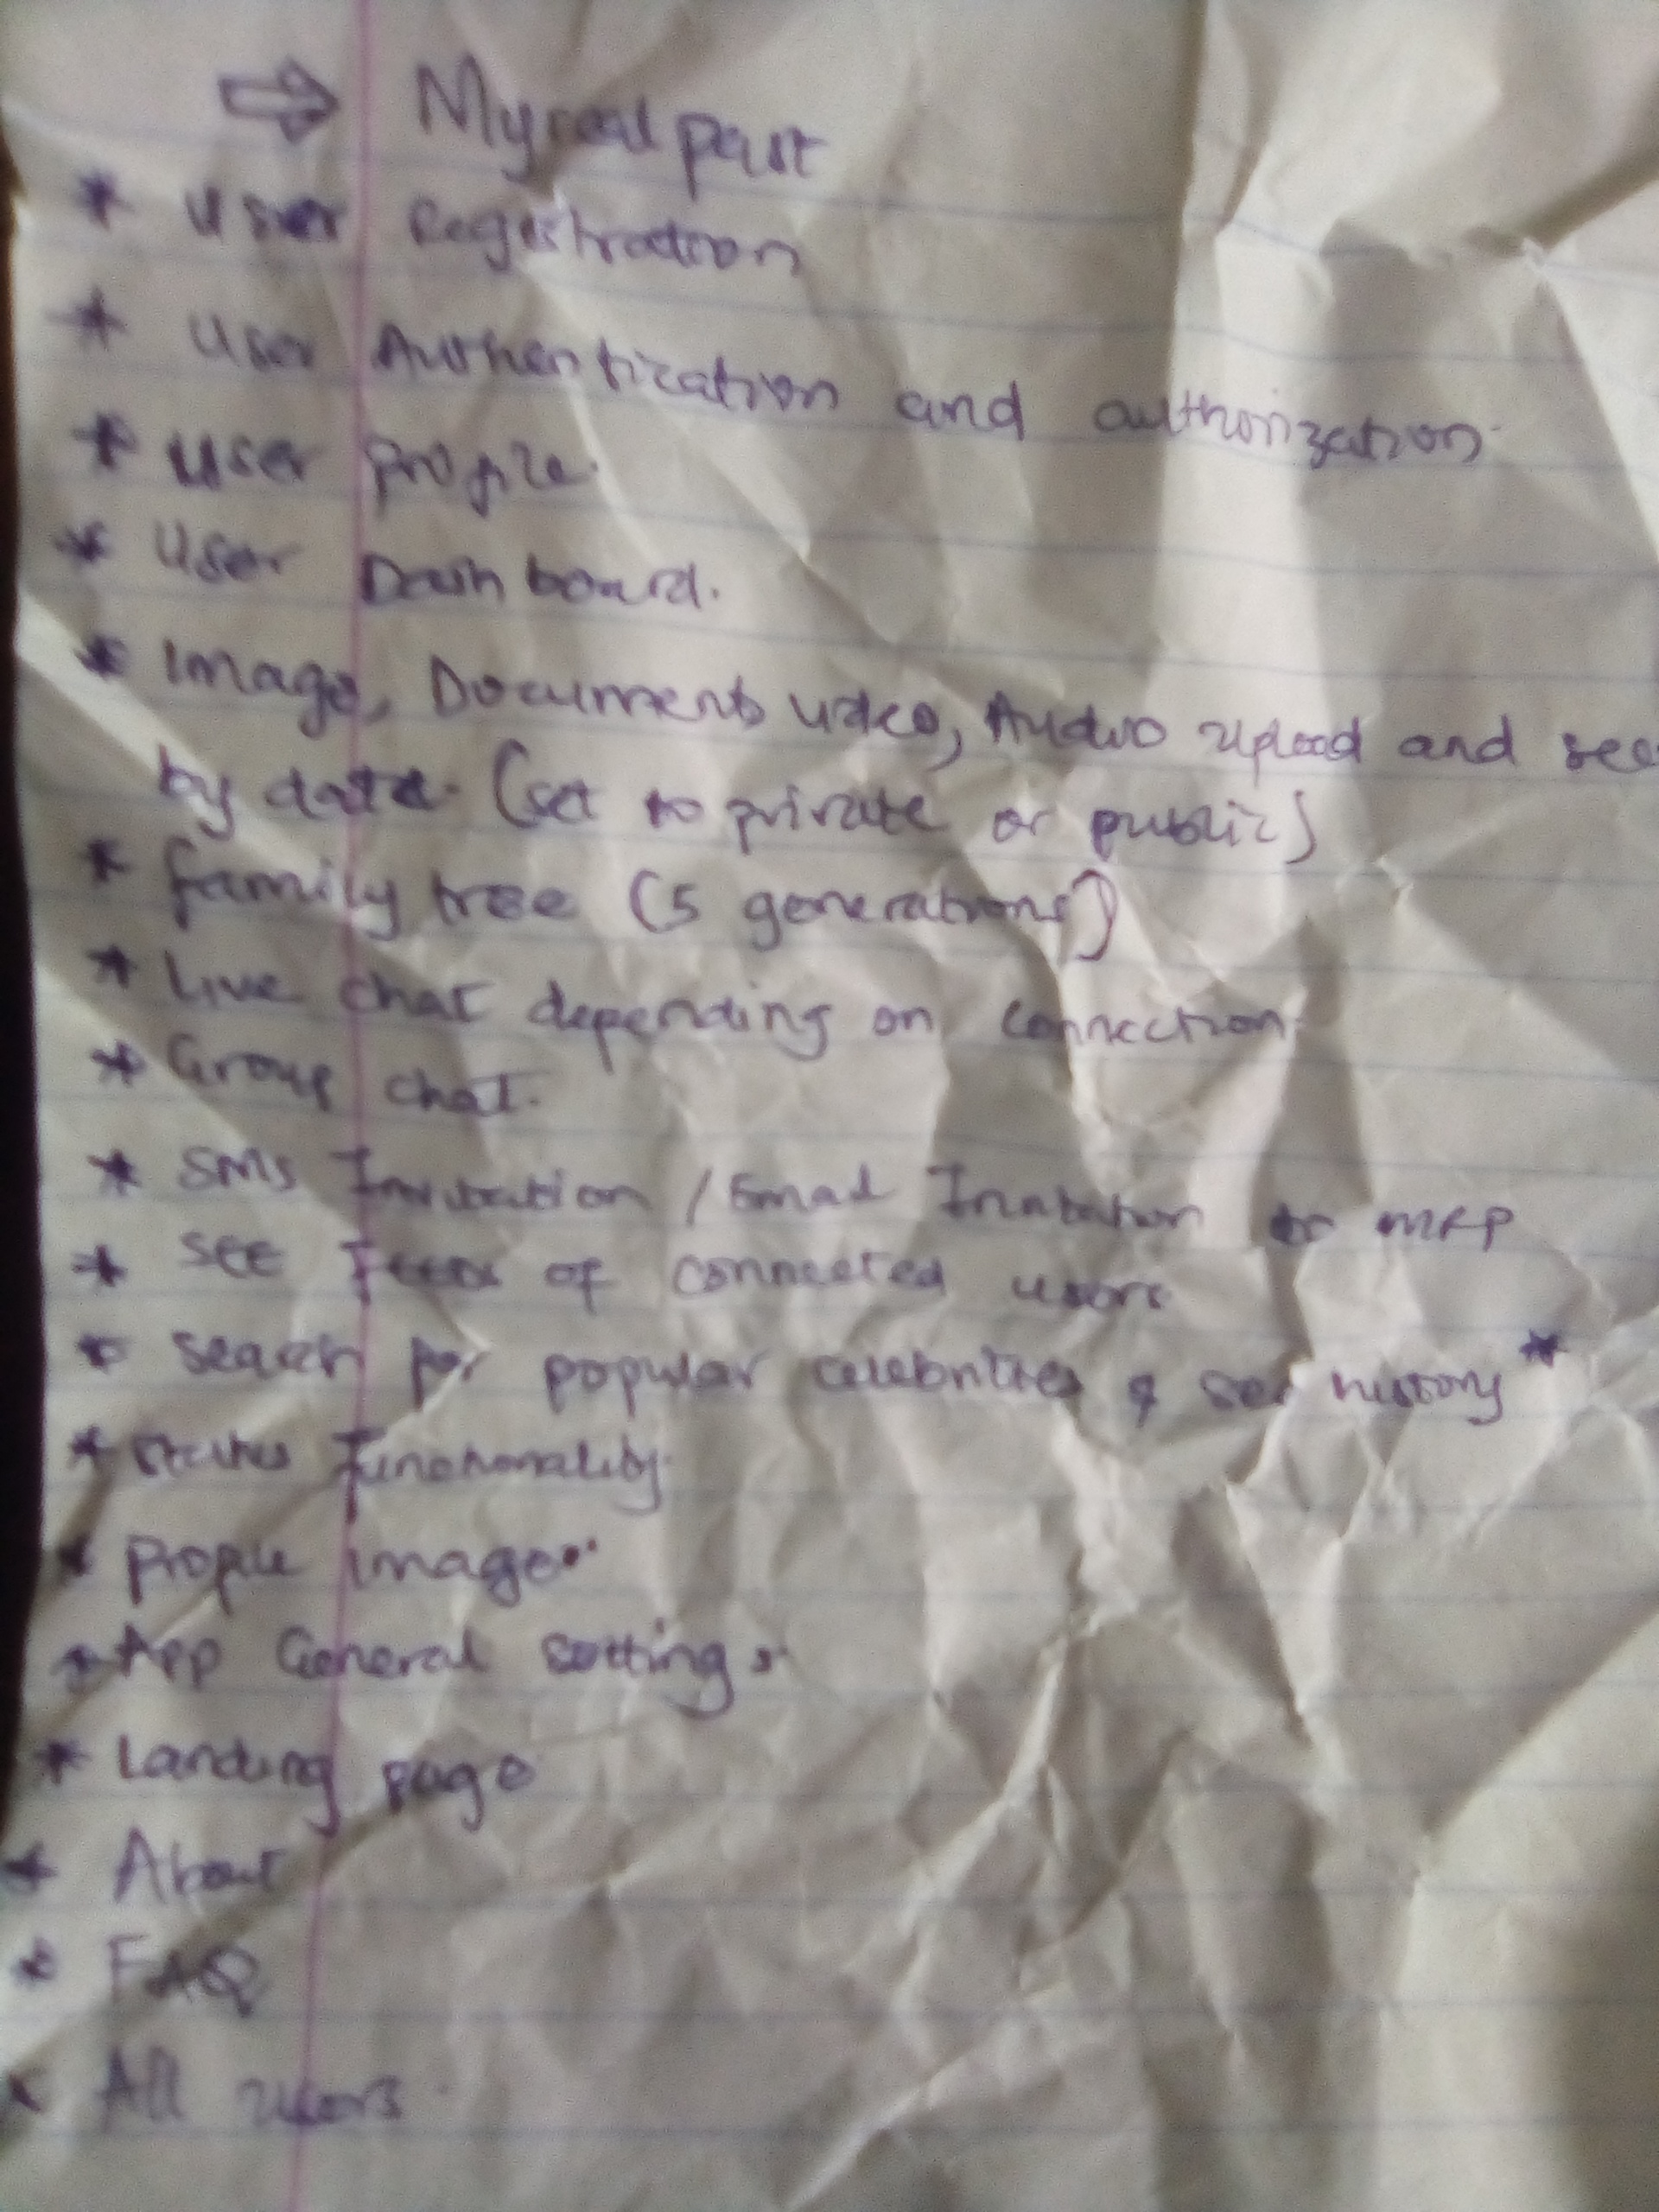 ⇨ Myrealpast
* User Registration
* User Authentication and authorization.
* User profile.
* User Dashboard.
* Image, Document, video, Audio upload and see
by date. (set to private or public)
* family tree (5 generations)
* Live chat depending on connection.
* Group chat.
* SMS Invitation / Email Invitation to MRP
* SEE Feeds of connected users
* Search for popular celebrities & see history *
* Status Functionality.
* Profile image.
* App General settings.
* Landing page
* About
* FAQ
* All users.